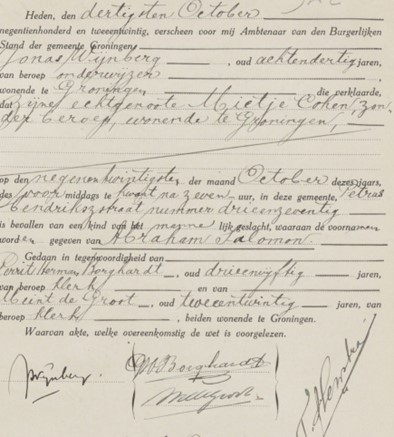 Heden, den dertigsten October
negentienhonderd en tweeentwintig, verscheen voor mij Ambtenaar van den Burgerlijken
Stand der gemeente Groningen
Jonas Wijnberg, oud achtendertig jaren,
van beroep onderwijzer
wonende te Groningen die verklaarde,
dat zijne echtgenoote Mietje Cohen, zon-
der beroep, wonende te Groningen,
op den negenentwintigsten der maand October dezes jaars,
des voormiddags te kwart na zeven uur, in deze gemeente, Petrus
Hendrikszstraat nummer drieenzeventig
is bevallen van een kind van het mannelijk geslacht, waaraan de voornamen
worden gegeven van Abraham Salomon.
Gedaan in tegenwoordigheid van
Gerrit Herman Borghardt, oud drieenvijftig jaren,
van beroep klerk en van
Meint de Groot, oud tweeentwintig jaren, van
beroep klerk, beiden wonende te Groningen.
Waarvan akte, welke overeenkomstig de wet is voorgelezen.
JWijnberg.
Borghardt
MdeGroot